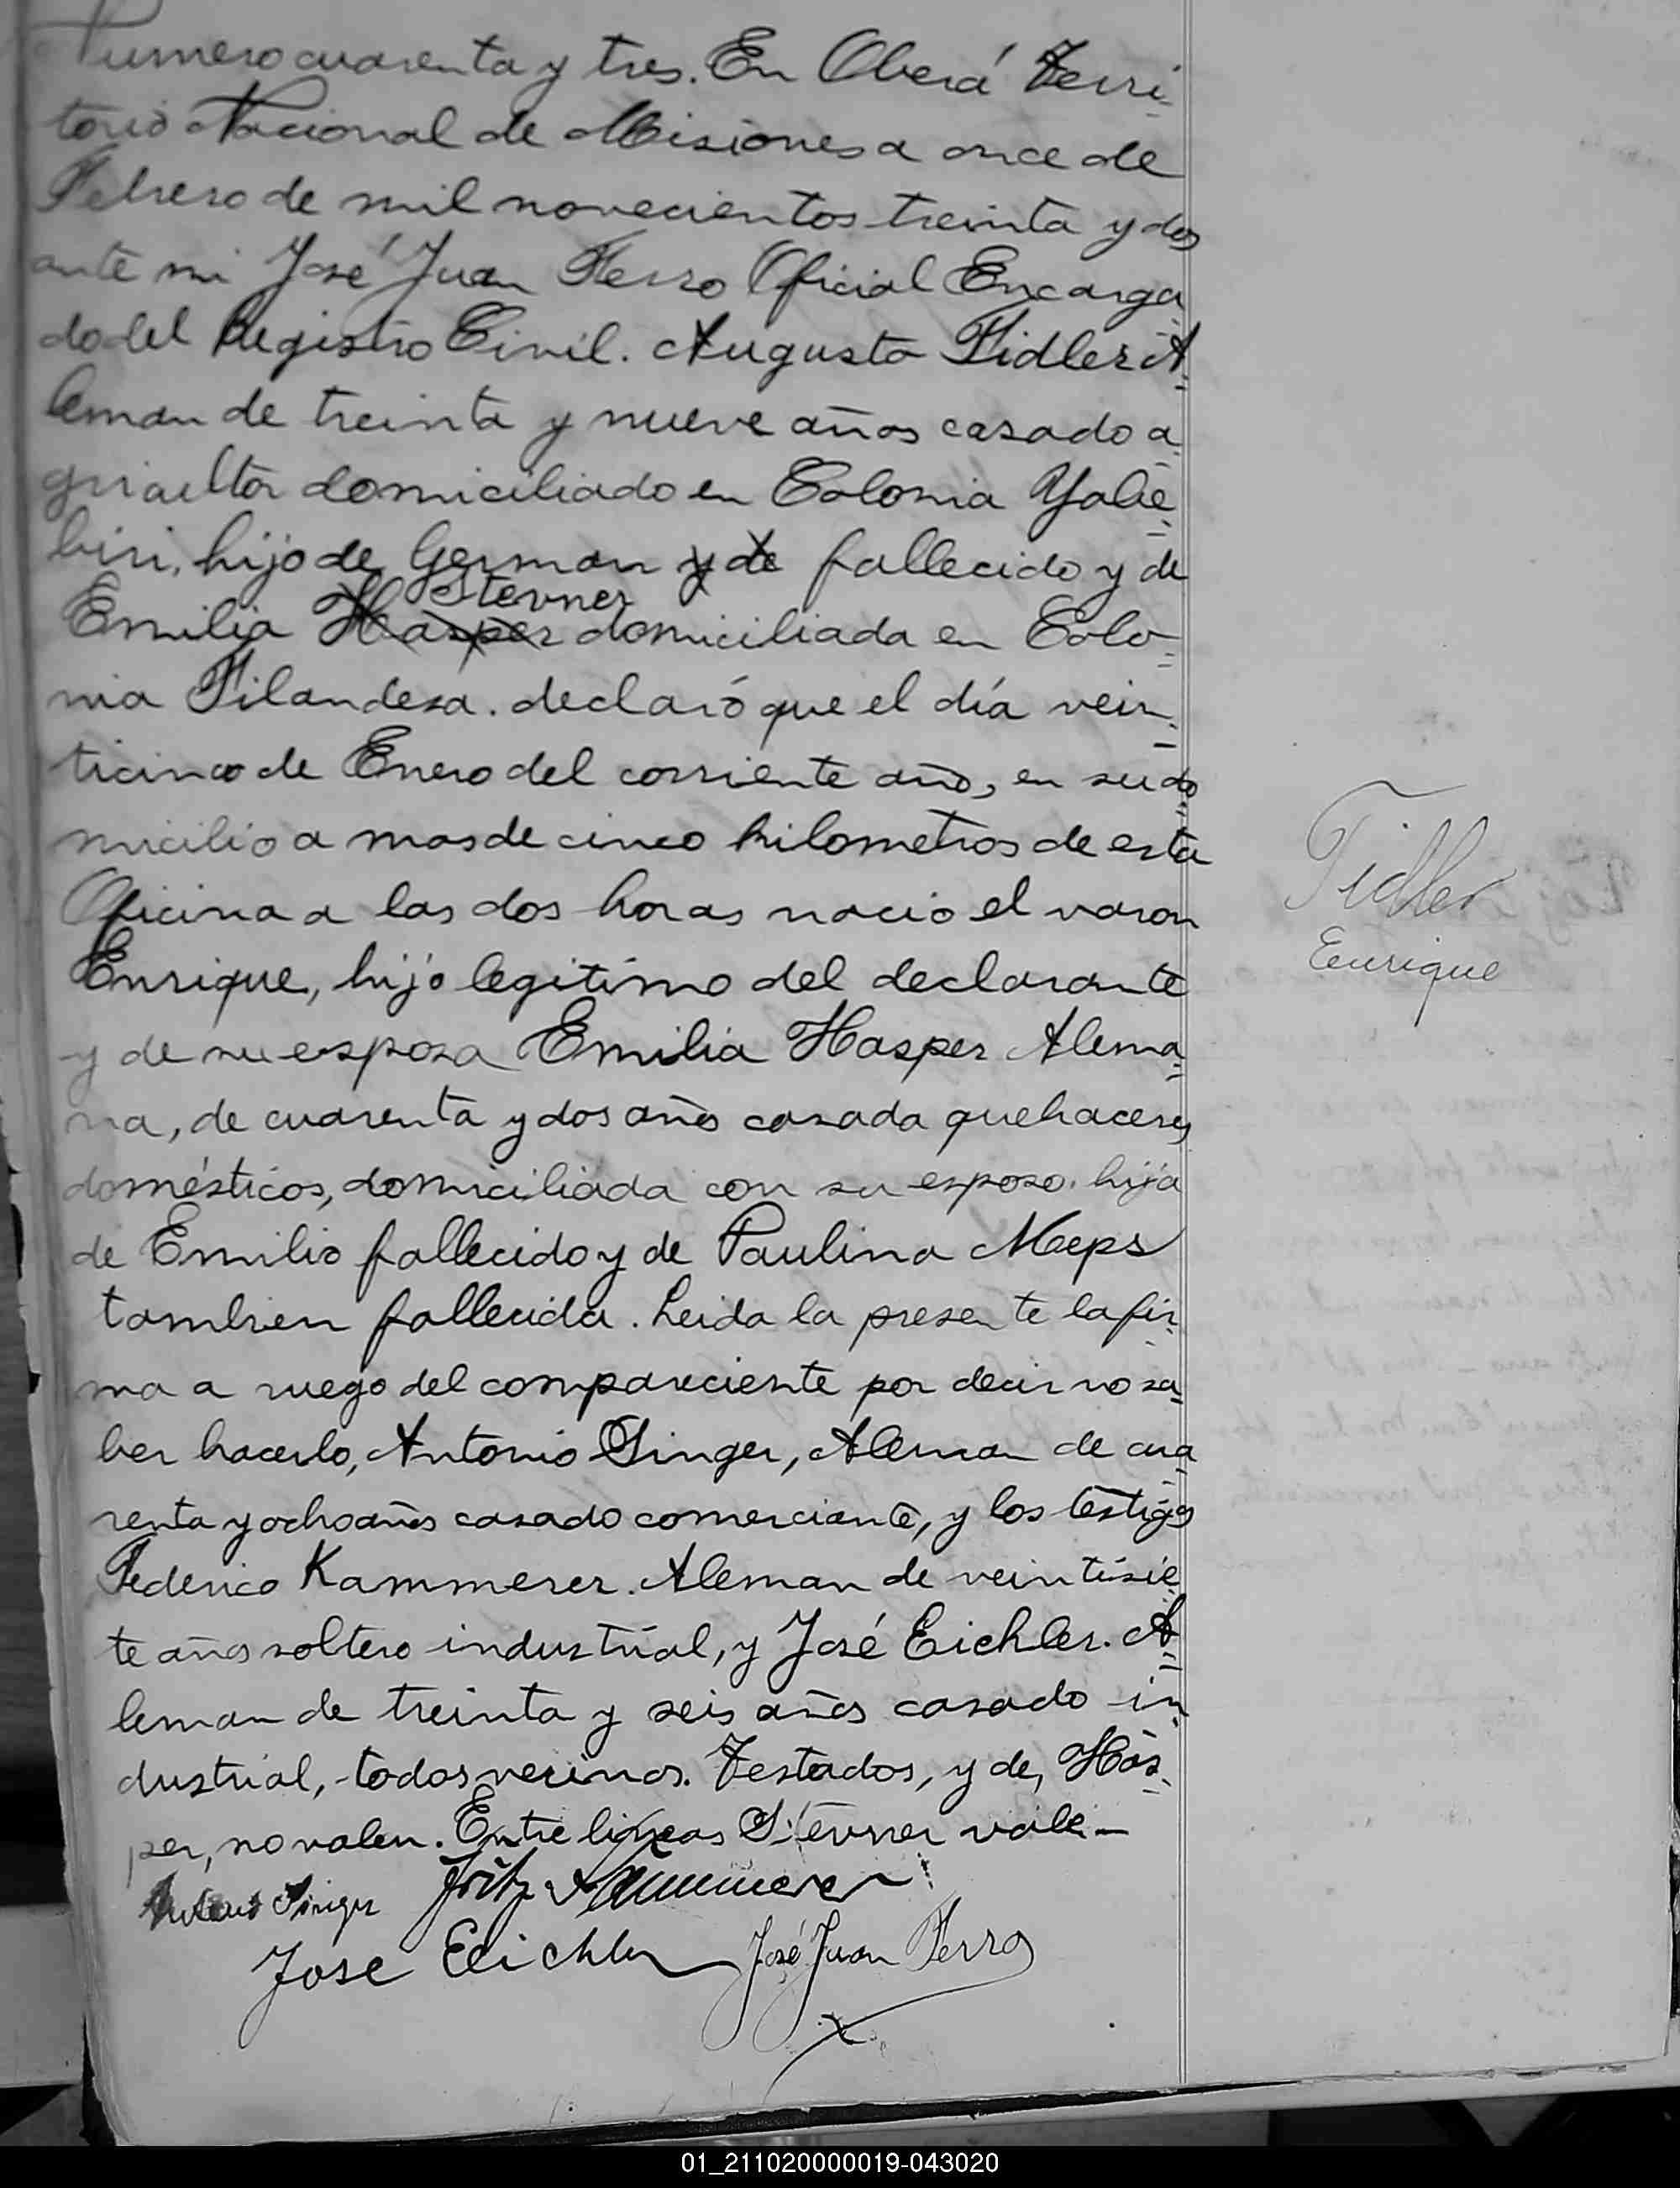 Numero cuarenta y tres. En Oberá Terri-
torio Nacional de Misiones a once de
Febrero de mil novecientos treinta y dos
ante mi José Juan Ferro Oficial Encarga-
do del Registro Civil. Augusto Fidler A-
leman de treinta y nueve años casado a-
gricultor domiciliado en Colonia Yabe-
biri, hijo de German y de fallecido y de
Stevner
Emilia Hasper domiciliada en Colo-
nia Filandesa. declaró que el día vein-
ticinco de Enero del corriente año, en su do-
micilio a mas de cinco kilometros de esta
Oficina a las dos horas nacio el varon
Enrique, hijo legitimo del declarante
y de su esposa Emilia Hasper Alema-
na, de cuarenta y dos años casada quehaceres
domésticos, domiciliada con su esposo. hija
de Emilio fallecido y de Paulina Meps
tambien fallecida. Leida la presente la fir-
ma a ruego del compareciente por decir no sa-
ber hacerlo, Antonio Singer, Aleman de cua-
renta y ocho años casado comerciante, y los testigos
Federico Kammerer. Aleman de veintisie-
te años soltero industrial, y José Eichler. A-
leman de treinta y seis años casado in-
dustrial, todos vecinos. Testados, y de, Has-
per, no valen. Entre lineas Stevner vale.—
Antonio Singer Fritz Kammerer
Jose Eichler José Juan Ferro
Fidler
Enrique
01_211020000019-043020